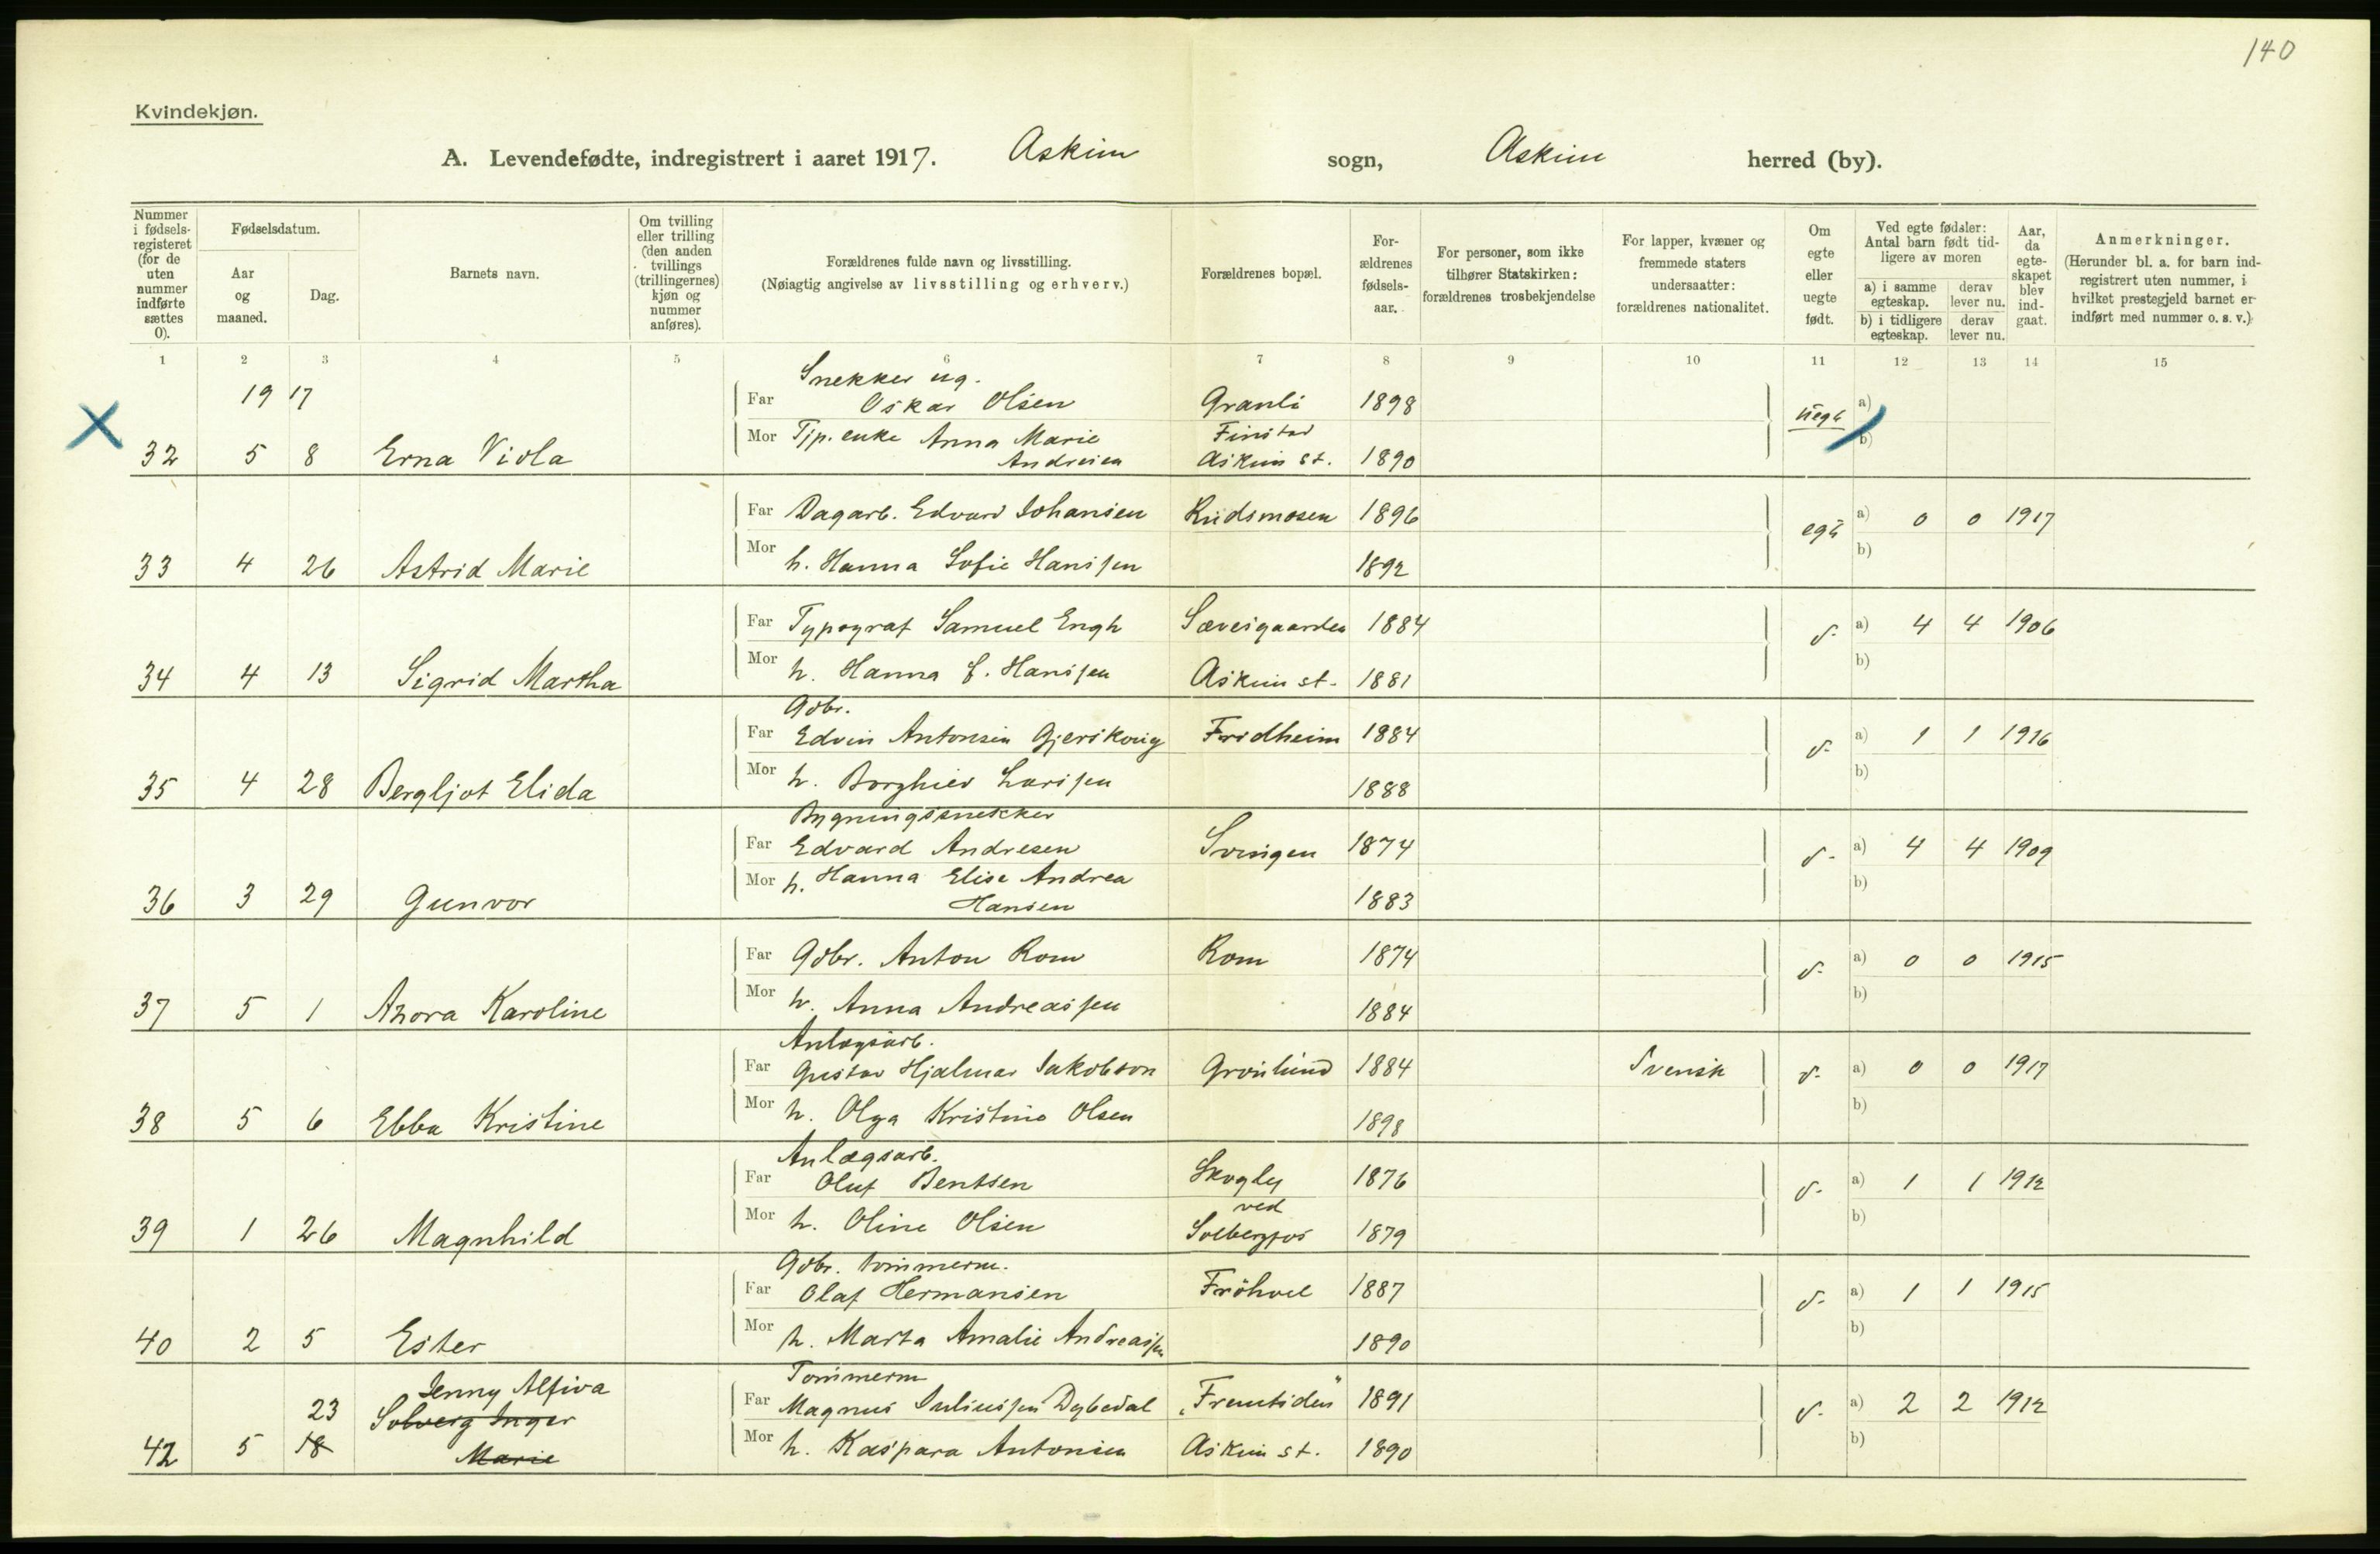 140
Kvindekjøn.
A. Levendefødte, indregistrert i aaret 1917. Askim sogn, Askim herred (by).
Nummer i fødsels-registeret (for de uten nummer indførte sættes 0).
Fødselsdatum.
Aar og maaned.
Dag.
Barnets navn.
Om tvilling eller trilling (den anden tvillings (trillingernes) kjøn og nummer anføres).
Forældrenes fulde navn og livsstilling.
(Nøiagtig angivelse av livsstilling og erhverv.)
Forældrenes bopæl.
For-ældrenes fødsels-aar.
For personer, som ikke tilhører Statskirken: forældrenes trosbekjendelse
For lapper, kvæner og fremmede staters undersaatter: forældrenes nationalitet.
Om egte eller uegte født.
Ved egte fødsler: Antal barn født tid-ligere av moren
a) i samme egteskap. derav lever nu.
b) i tidligere egteskap. derav lever nu.
Aar, da egte-skapet blev ind-gaat.
Anmerkninger.
(Herunder bl. a. for barn ind-registrert uten nummer, i hvilket prestegjeld barnet er indført med nummer o. s. v.)
1 2 3 4 5 6 7 8 9 10 11 12 13 14 15
19 17
Snekker ug.
Far Oskar Olsen Granli 1898 uegte a)
Mor Tjp. enke Anna Marie Finstad b)
32 5 8 Erna Viola Andresen Askim st. 1890
Far Dagarb. Edvard Johansen Rudsmosen 1896 egte a) 0 0 1917
33 4 26 Astrid Marie Mor h. Hanna Sofie Hanssen 1892 b)
Far Typograf Samuel Engh Sævesgaarden 1884 a) 4 4 1906
34 4 13 Sigrid Martha Mor h. Hanna Hanssen Askim st. 1881 b)
Gdbr.
Far Edvin Antonsen Fridheim 1884 a) 1 1 1916
35 4 28 Bergljot Elida Mor h. Borghild Larssen 1888 b)
Bygningssnekker
Far Edvard Andresen Svingen 1874 a) 4 4 1909
Mor h. Hanna Elise Andrea b)
36 3 29 Gunvor Hansen 1883
Far Gdbr. Anton Rom Rom 1874 a) 0 0 1915
37 5 1 Azora Karoline Mor h. Anna Andreassen 1884 b)
Anlægsarb.
Far Gustav Hjalmar Jakobson Grønlund 1884 Svensk a) 0 0 1917
38 5 6 Ebba Kristine Mor h. Olga Kristine Olsen 1898 b)
Anlægsarb.
Far Oluf Bentsen Skogly 1876 a) 1 1 1912
ved
39 1 26 Magnhild Mor h. Oline Olsen Solbergfos 1879 b)
Gdbr. tømmerm.
Far Olaf Hermansen Frøhvel 1887 a) 1 1 1915
40 2 5 Ester Mor h. Marta Amalie Andreassen 1890 b)
Jenny Alfiva Tømmerm
23 Solveig Inger Far Magnus Juliussen Dybedal „Fremtiden" 1891 a) 2 2 1912
42 5 18 Marie Mor h. Kaspara Antonsen Askim st. 1890 b)